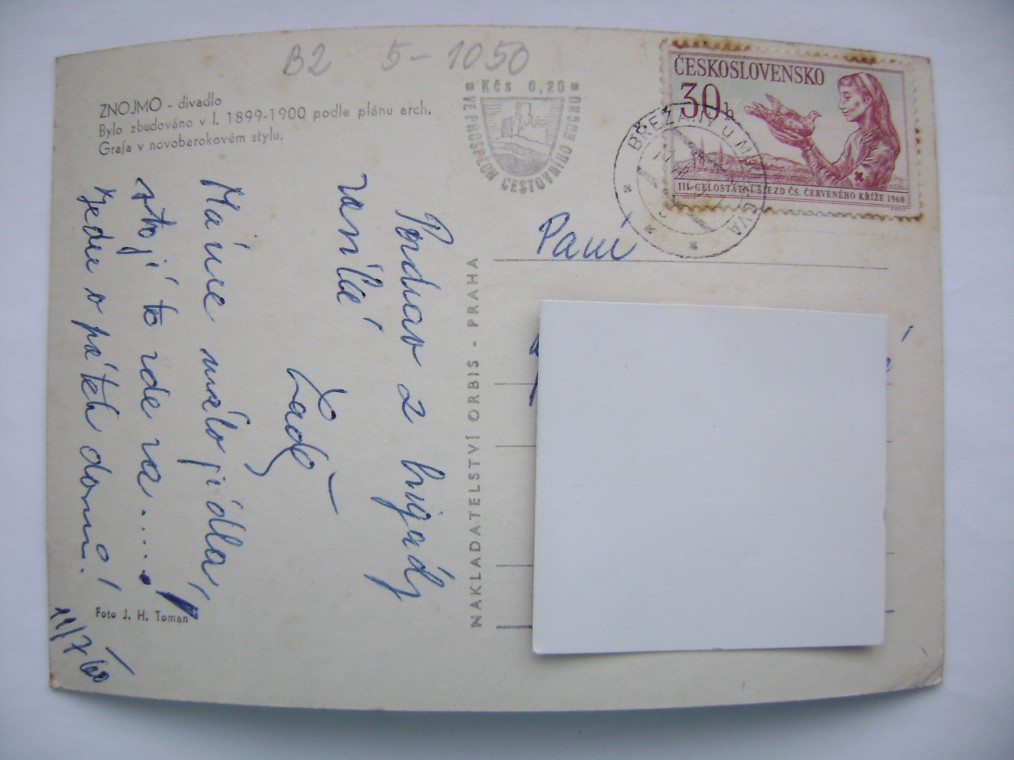 B2 5-1050
ZNOJMO - divadlo
Bylo zbudováno v l. 1899-1900 podle plánu arch.
Grafa v novobarokovém stylu.
Kčs 0,20
VE PROSPĚCH CESTOVNÍHO RUCHU
ČESKOSLOVENSKO
30h
III. CELOSTÁTNÍ SJEZD ČS. ČERVENÉHO KŘÍŽE 1960
BŘEZANY U
Paní
NAKLADATELSTVÍ ORBIS - PRAHA
Pozdrav z brigády
zasílá
Máme málo jídla,
stojí to zde za.....
Jedu v pátek domů!
11/7 60
Foto J. H. Toman